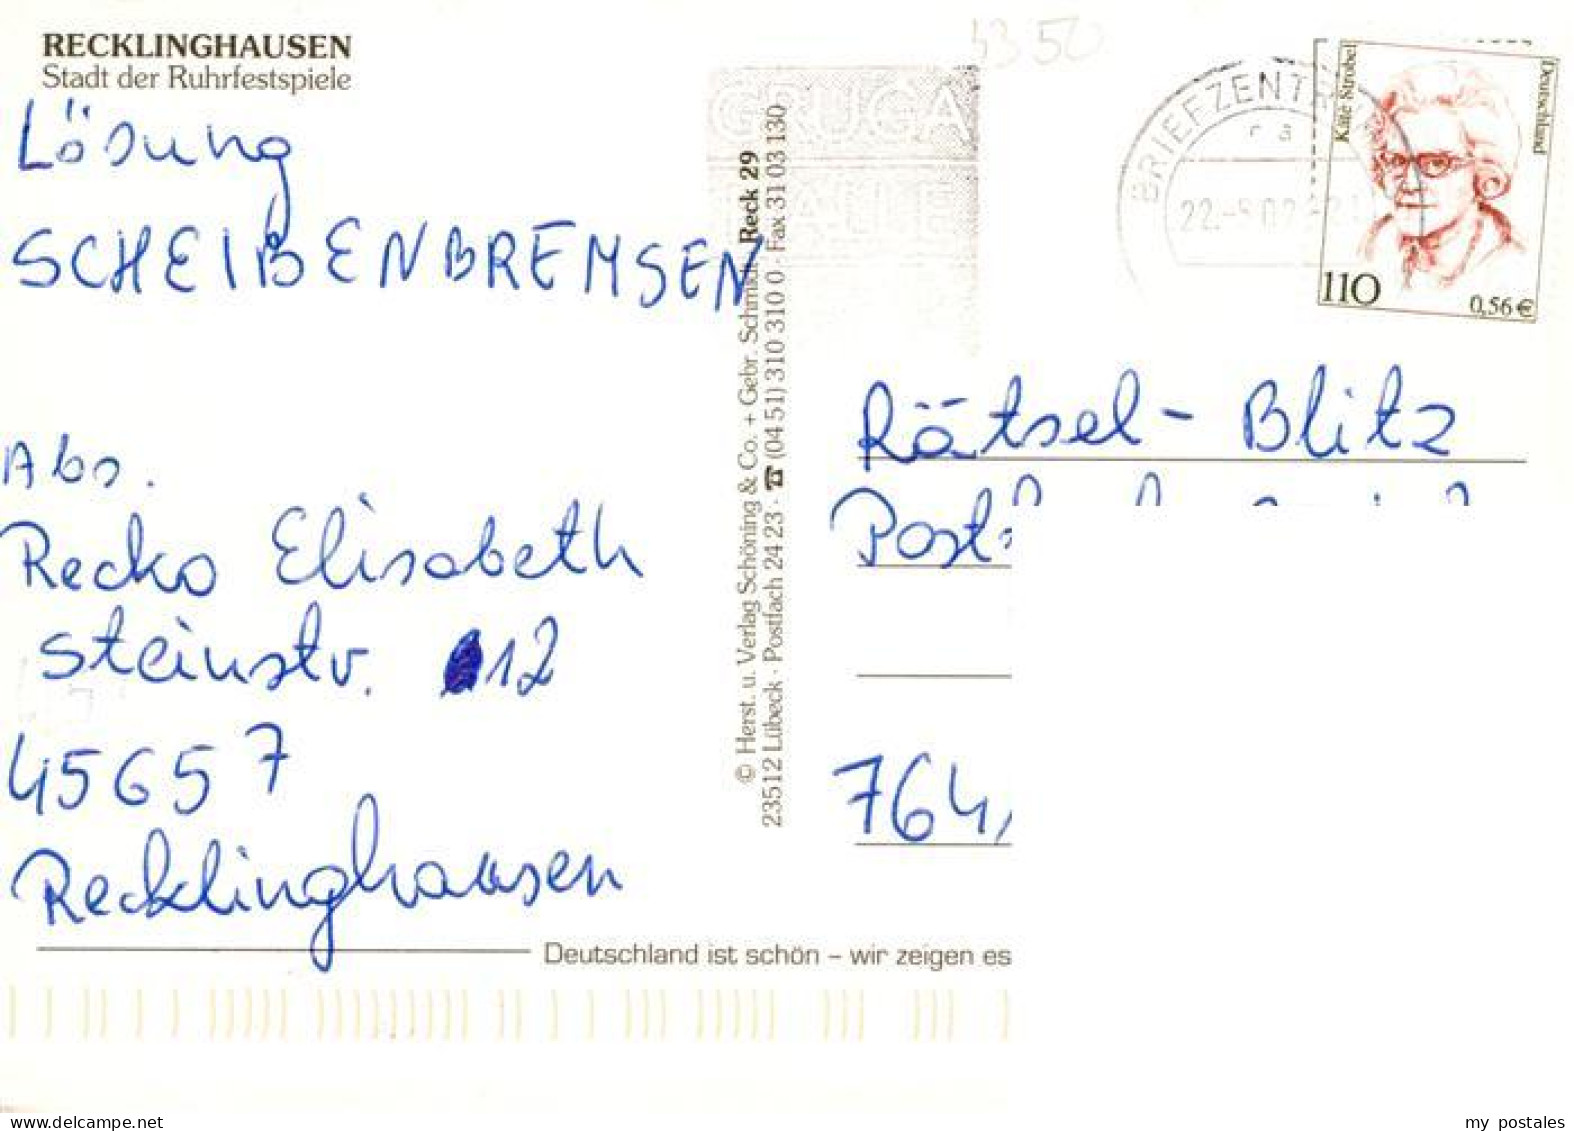 RECKLINGHAUSEN
Stadt der Ruhrfestspiele
Lösung
SCHEIBENBREMSEN
Abs.
Recko Elisabeth
Steinstr. 12
45657
Recklinghausen
© Herst. u. Verlag Schöning & Co. + Gebr. Schmidt Reck 29
23512 Lübeck · Postfach 24 23 · ☎ (04 51) 310 310 0 · Fax 31 03 130
GRUGA
HALLE
BRIEFZENTR
Käte Strobel
Deutschland
110
0,56 €
Rätsel-Blitz
764
Deutschland ist schön – wir zeigen es
my postales